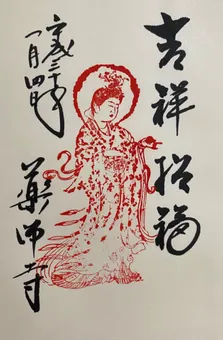 吉祥招福
平成三十年
一月四日
薬師寺